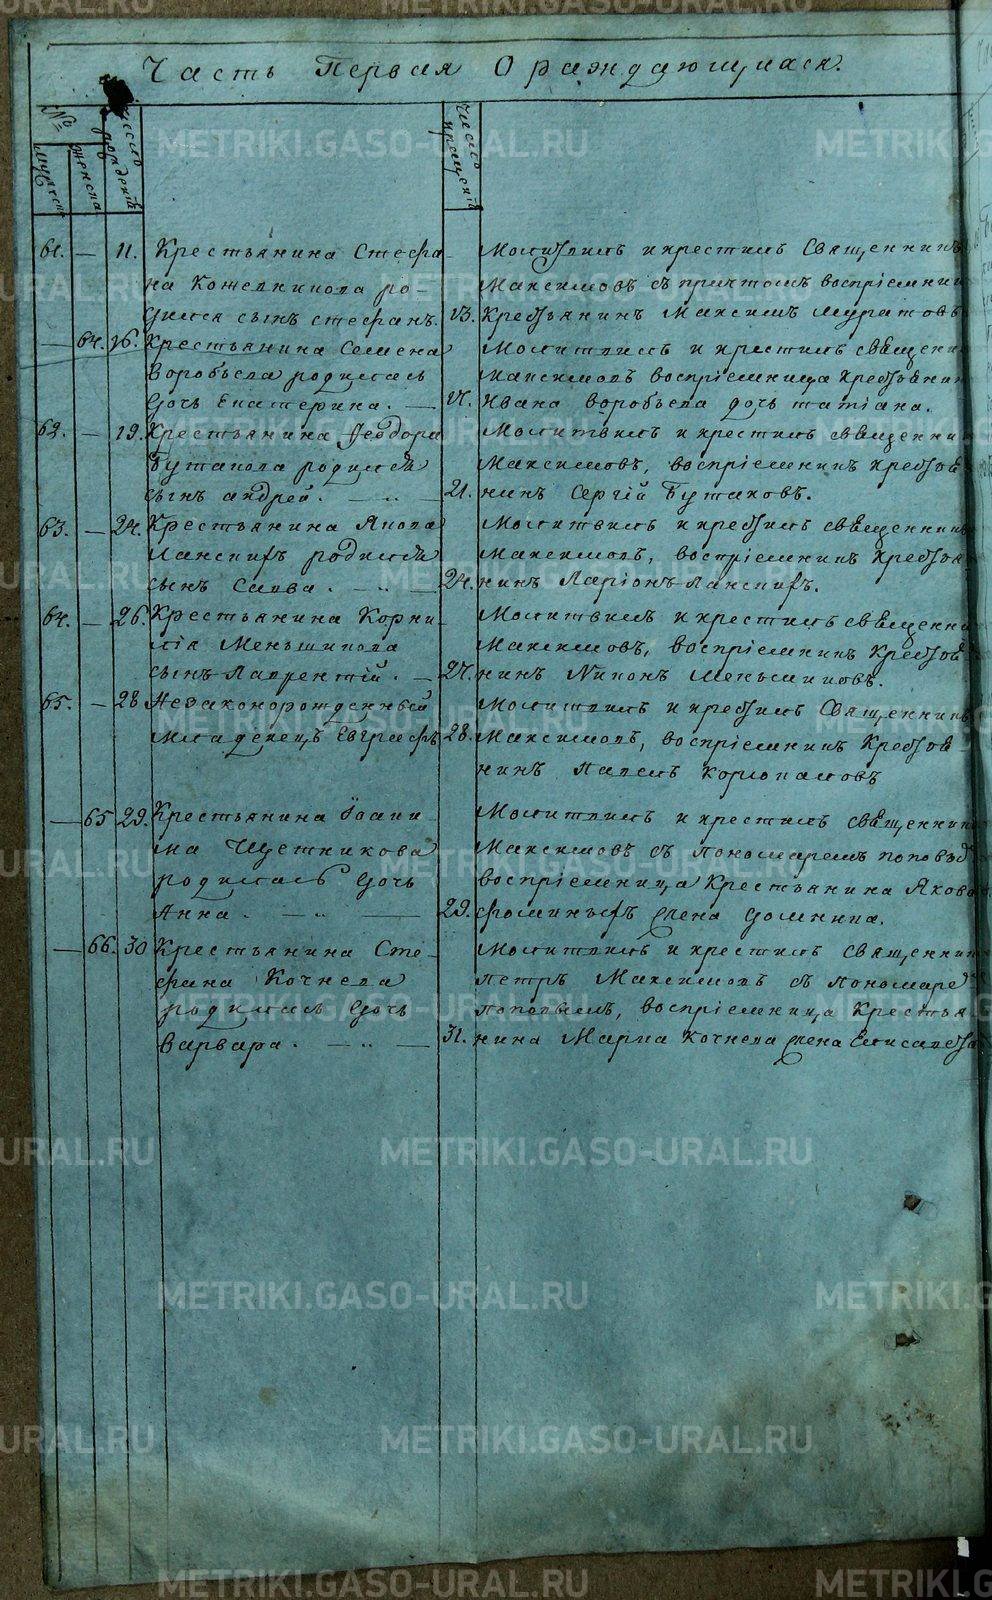 Часть Первая О раждающихся.
№
мужеска
женска
число рождения
число крещения
61. — 11. Крестьянина Стефа-
на Кожевникова ро-
дился сынъ Стефанъ.
Молитвилъ и крестилъ Священникъ
Максимовъ съ причтомъ воспріемник
13. Крестьянинъ Максимъ Муратовъ
— 64. 16. Крестьянина Семена
Воробьева родилась
дочь Екатерина. —
Молитвилъ и крестилъ священник
Максимовъ воспріемница крестьянин
17. Ивана Воробьева дочь Татіана.
62. — 19. Крестьянина Ѳеодора
Бутакова родился
сынъ Андрей. — „ —
Молитвилъ и крестилъ священник
Максимовъ, воспріемникъ крестья
21. нинъ Сергій Бутаковъ.
63. — 24. Крестьянина Якова
Ланскихъ родился
сынъ Савва. — „ —
Молитвилъ и крестилъ священникъ
Максимовъ, воспріемникъ крестья
24. нинъ Ларіонъ Ланскихъ.
64. — 26. Крестьянина Корни-
лія Меньшикова
сынъ Лаврентій. —
Молитвилъ и крестилъ священник
Максимовъ, воспріемникъ крестья
27. нинъ Никонъ Меньшиковъ.
65. — 28 Незаконорожденный
младенецъ Евграфъ
Молитвилъ и крестилъ Священникъ
28. Максимовъ, воспріемникъ Крестья
нинъ Павелъ
— 65 29. Крестьянина Іоаки-
ма Щетникова
родилась дочь
Анна. — „ —
Молитвилъ и крестилъ священник
Максимовъ съ пономаремъ
воспріемница Крестьянина Якова
29. Фоминыхъ жена Домника.
— 66. 30 Крестьянина Сте-
фана Кочнева
родилась дочь
Варвара. — „ —
Молитвилъ и крестилъ Священник
Петръ Максимовъ съ Пономаре
Поповымъ, воспріемница Крестья
31. нина Марка Кочнева жена Елисавета
METRIKI.GASO-URAL.RU